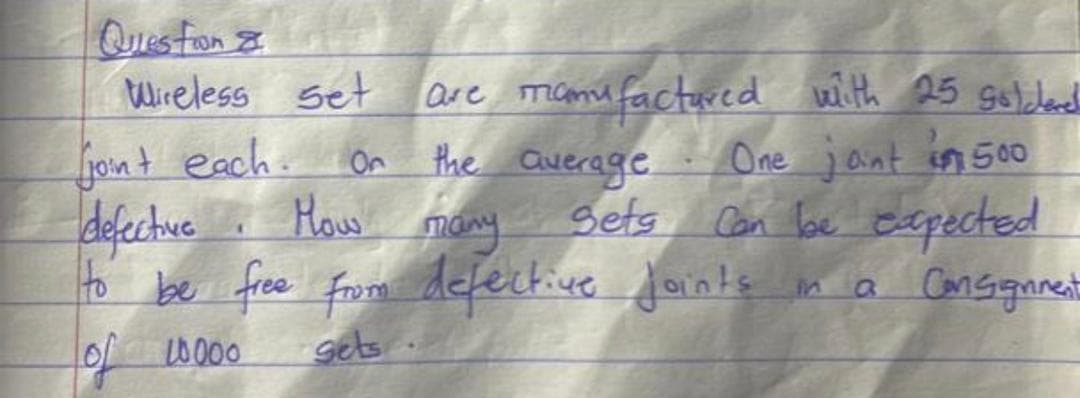 Question
Wireless set are manufactured with 25 soldered
joint each. On the average. One joint in 500
defective. How many sets can be expected
to be free from defective joints in a Consignment
of 10000 sets.